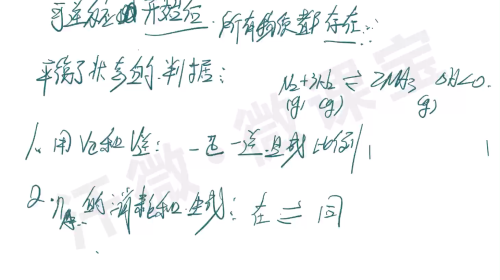 可逆反应 开始后 所有物质都存在
平衡了状态的判据:
N2+3H2 ⇌ 2NH3 ΔH<0.
(g) (g) (g)
1. 用V正和V逆: 一正一逆且成比例
2. 的消耗和生成: 在 ⇌ 同